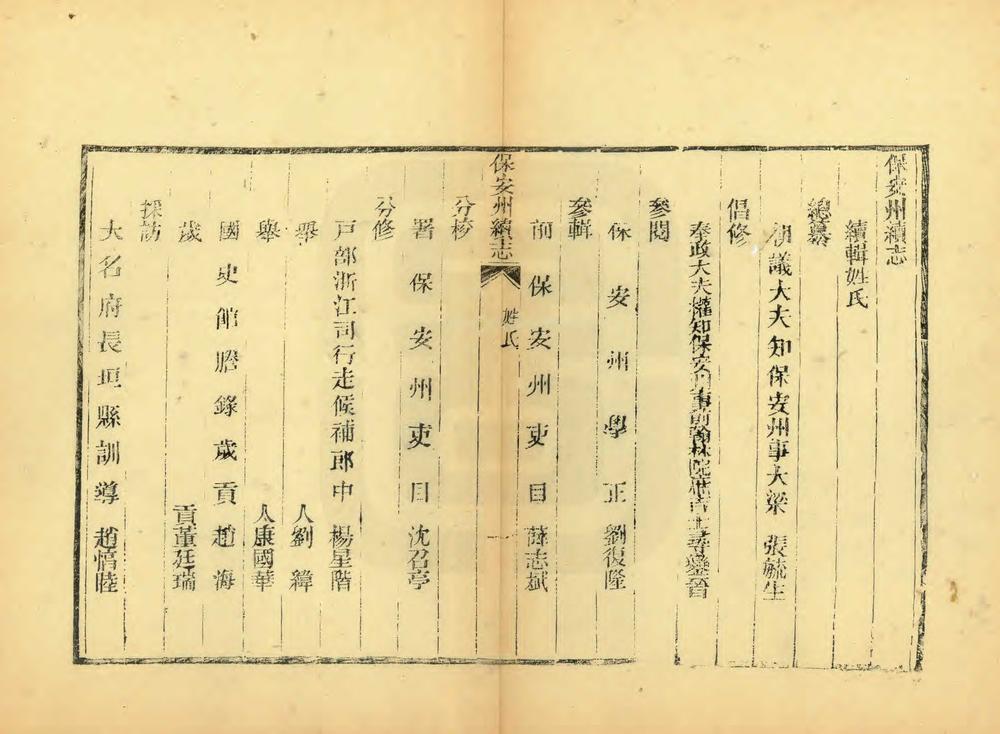 保安州續志
續輯姓氏
總纂
演議大夫知保安州事大梁 張毓生
倡修
奉政大夫權知保安州事前翰林院庶吉士尋鑾晉
參閱
保安州學正劉復隆
參輯
前保安州吏目薛志斌
保安州續志 姓氏 一
分校
署保安州吏目沈召亭
分修
戶部浙江司行走候補郎中 楊星階
舉人劉緯
舉人康國華
國史館謄錄歲貢趙海
歲貢董廷瑞
採訪
大名府長垣縣訓導 趙愔睦